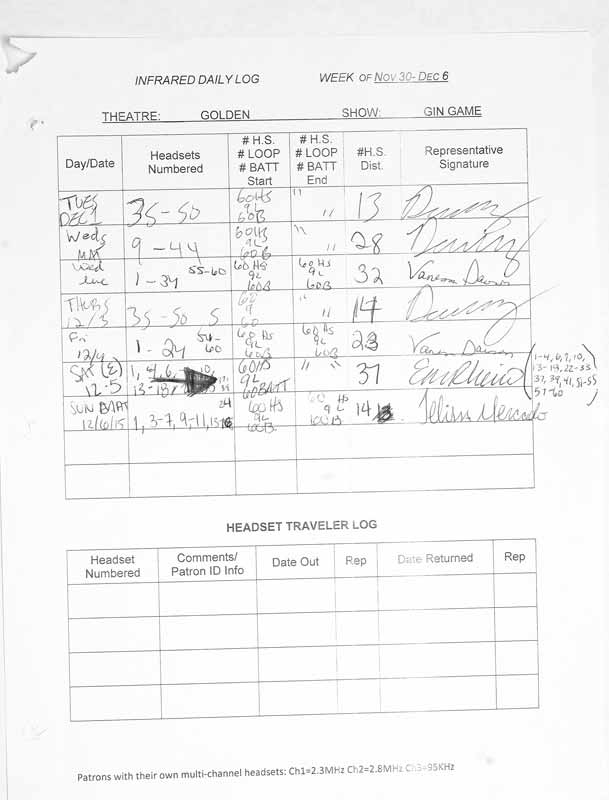 INFRARED DAILY LOG WEEK OF NOV 30- DEC 6
THEATRE: GOLDEN SHOW: GIN GAME
Day/Date Headsets Numbered # H.S. # LOOP # BATT Start # H.S. # LOOP # BATT End #H.S. Dist. Representative Signature
TUES DEC 1 35-50 60HS 9L 60B " " 13
Weds MM 9-44 60HS 9L 60B " " 28
Wed 1-34 55-60 60 HS 9L 60B 60 HS 9L 60B 32 Vanessa
THURS 12/3 35-50 60 9 60 " " 14
Fri 12/4 1-24 54-60 60 HS 9L 60B 60 HS 9L 60B 23
SAT (E) 12-5 1, 4, 6, 60HS 9L 60BATT " " 37
(1-4, 6, 7, 10,
13-19, 22-33
37, 39, 41, 51-55
57-60)
SUN 12/6/15 1, 3-7, 9-11, 24 60 HS 9L 60B 60 HS 9L 60B 14 Mercado
HEADSET TRAVELER LOG
Headset Numbered Comments/ Patron ID Info Date Out Rep Date Returned Rep
Patrons with their own multi-channel headsets: Ch1=2.3MHz Ch2=2.8MHz Ch3=95KHz